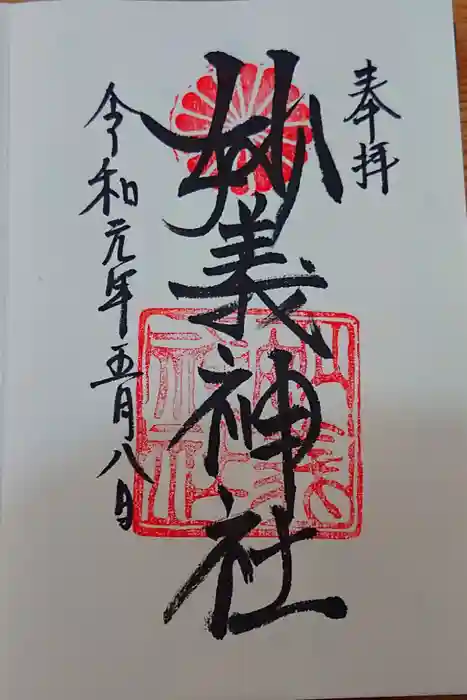 奉拝
妙義神社
令和元年五月八日